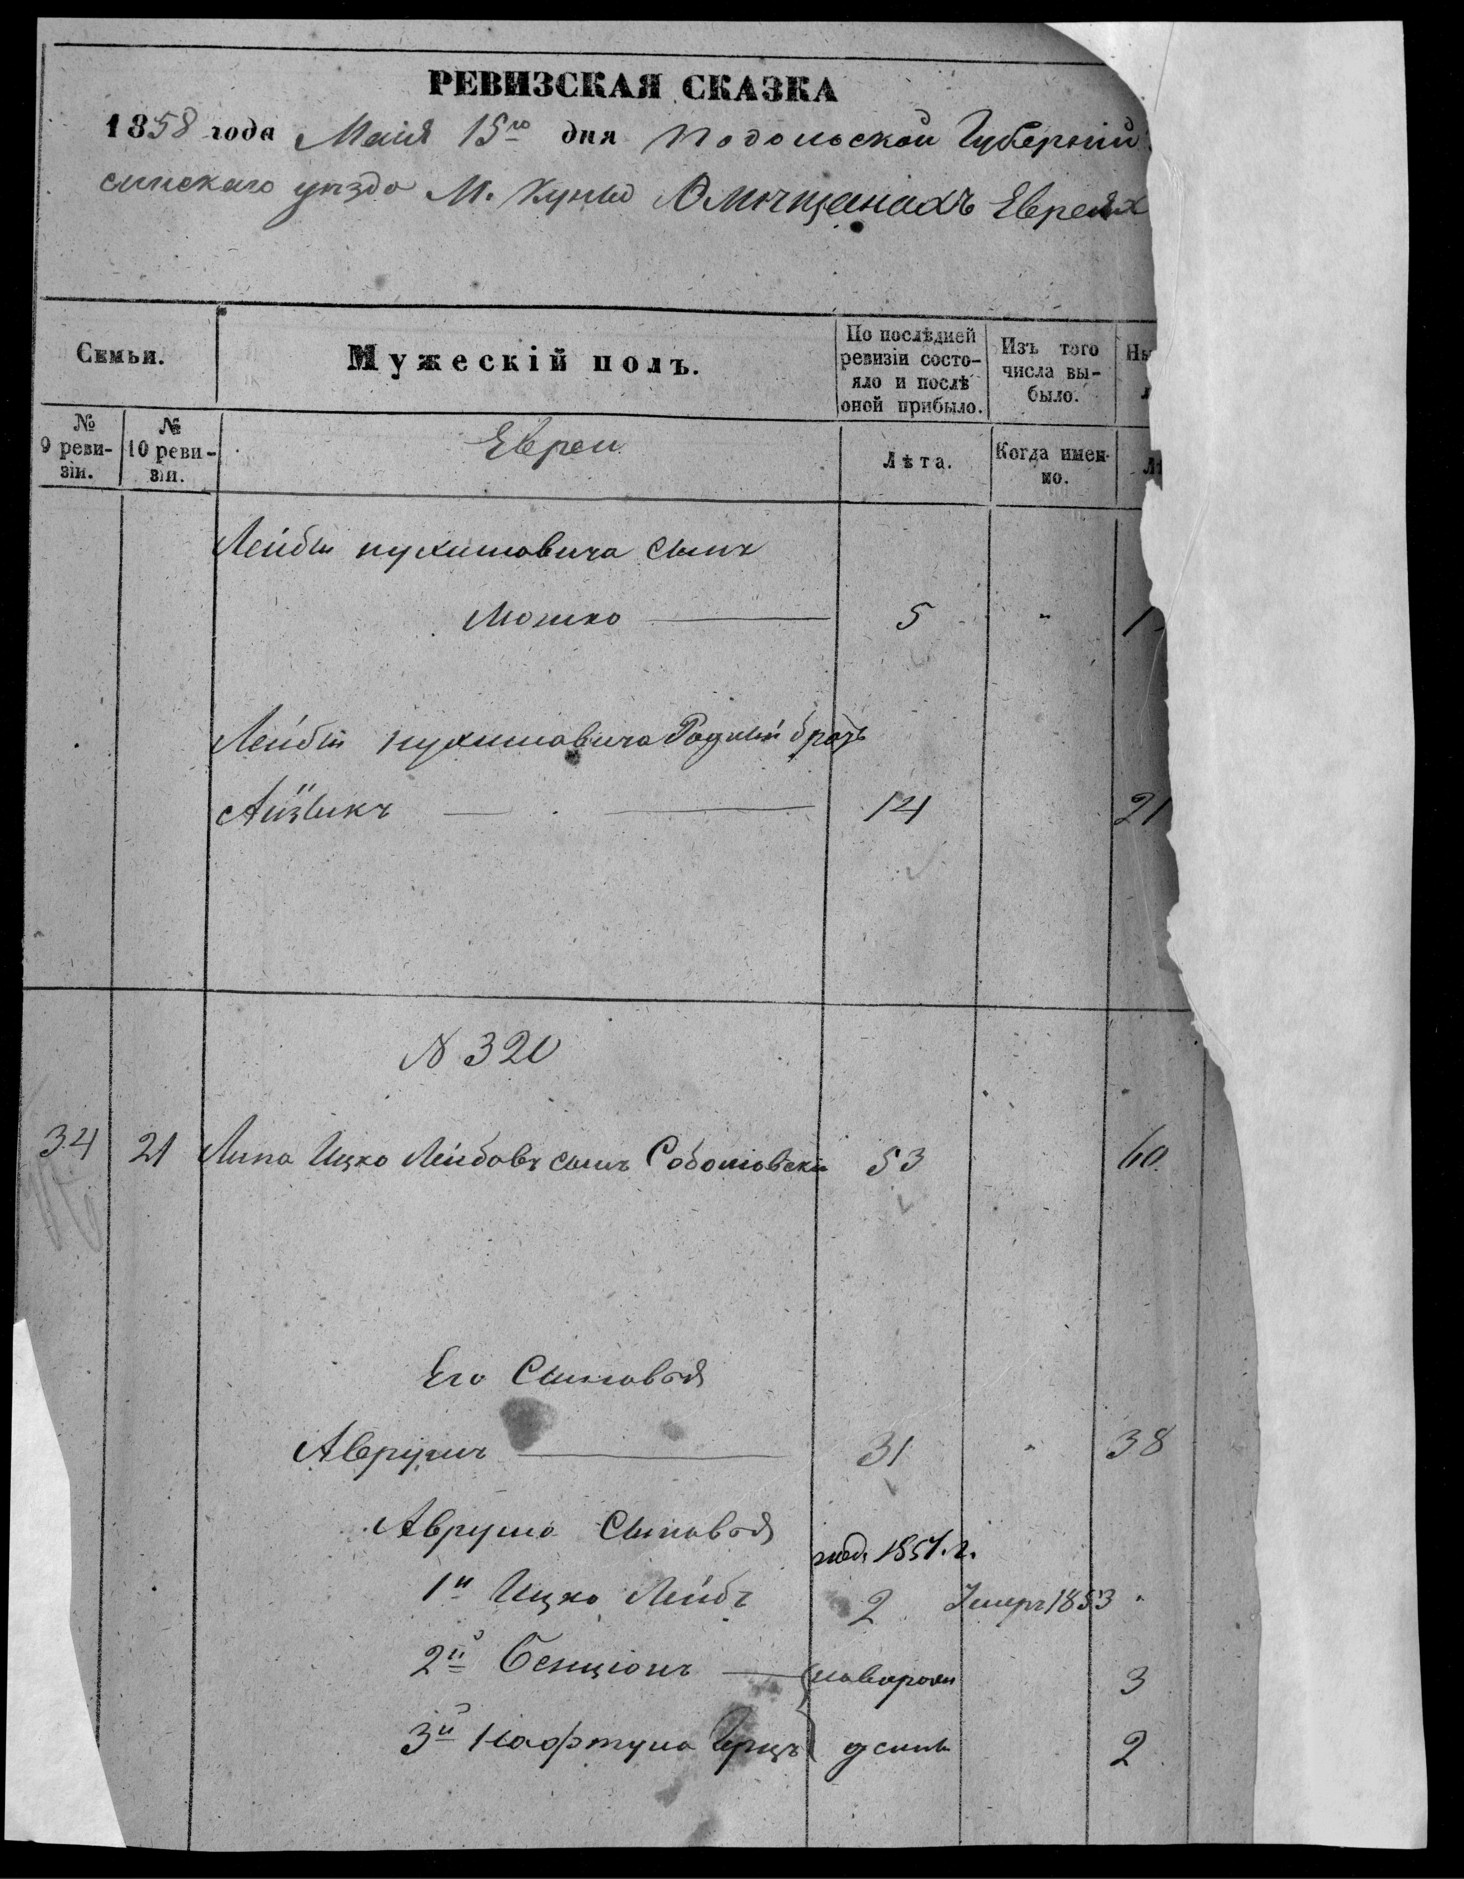 РЕВИЗСКАЯ СКАЗКА
1858 года Маия 15го дня Подольской Губернiи
синскаго уѣзда М. Куны О мѣщанахъ Евреяхъ
Семьи.
Мужескiй полъ.
По послѣдней ревизiи состо-
яло и послѣ
оной прибыло.
Изъ того
числа вы-
было.
№
9 реви-
зiи.
№
10 реви-
зiи.
Евреи
Лѣта.
Когда имен-
но.
Лейбы Нухимовича сынъ
Мошко 5 "
Лейбы Нухимовича Родный братъ
Айзикъ 14 21
N 320
34 21 Липа Ицко Лейбовъ сынъ Соболювскiй 53 60
Его Сыновья
Аврумъ 31 " 38
Аврума Сыновья
1й Ицко Лейбъ 2 Умеръ 1853 "
2й Бенцiонъ новорож 3
3й Нафтула Герцъ денны 2